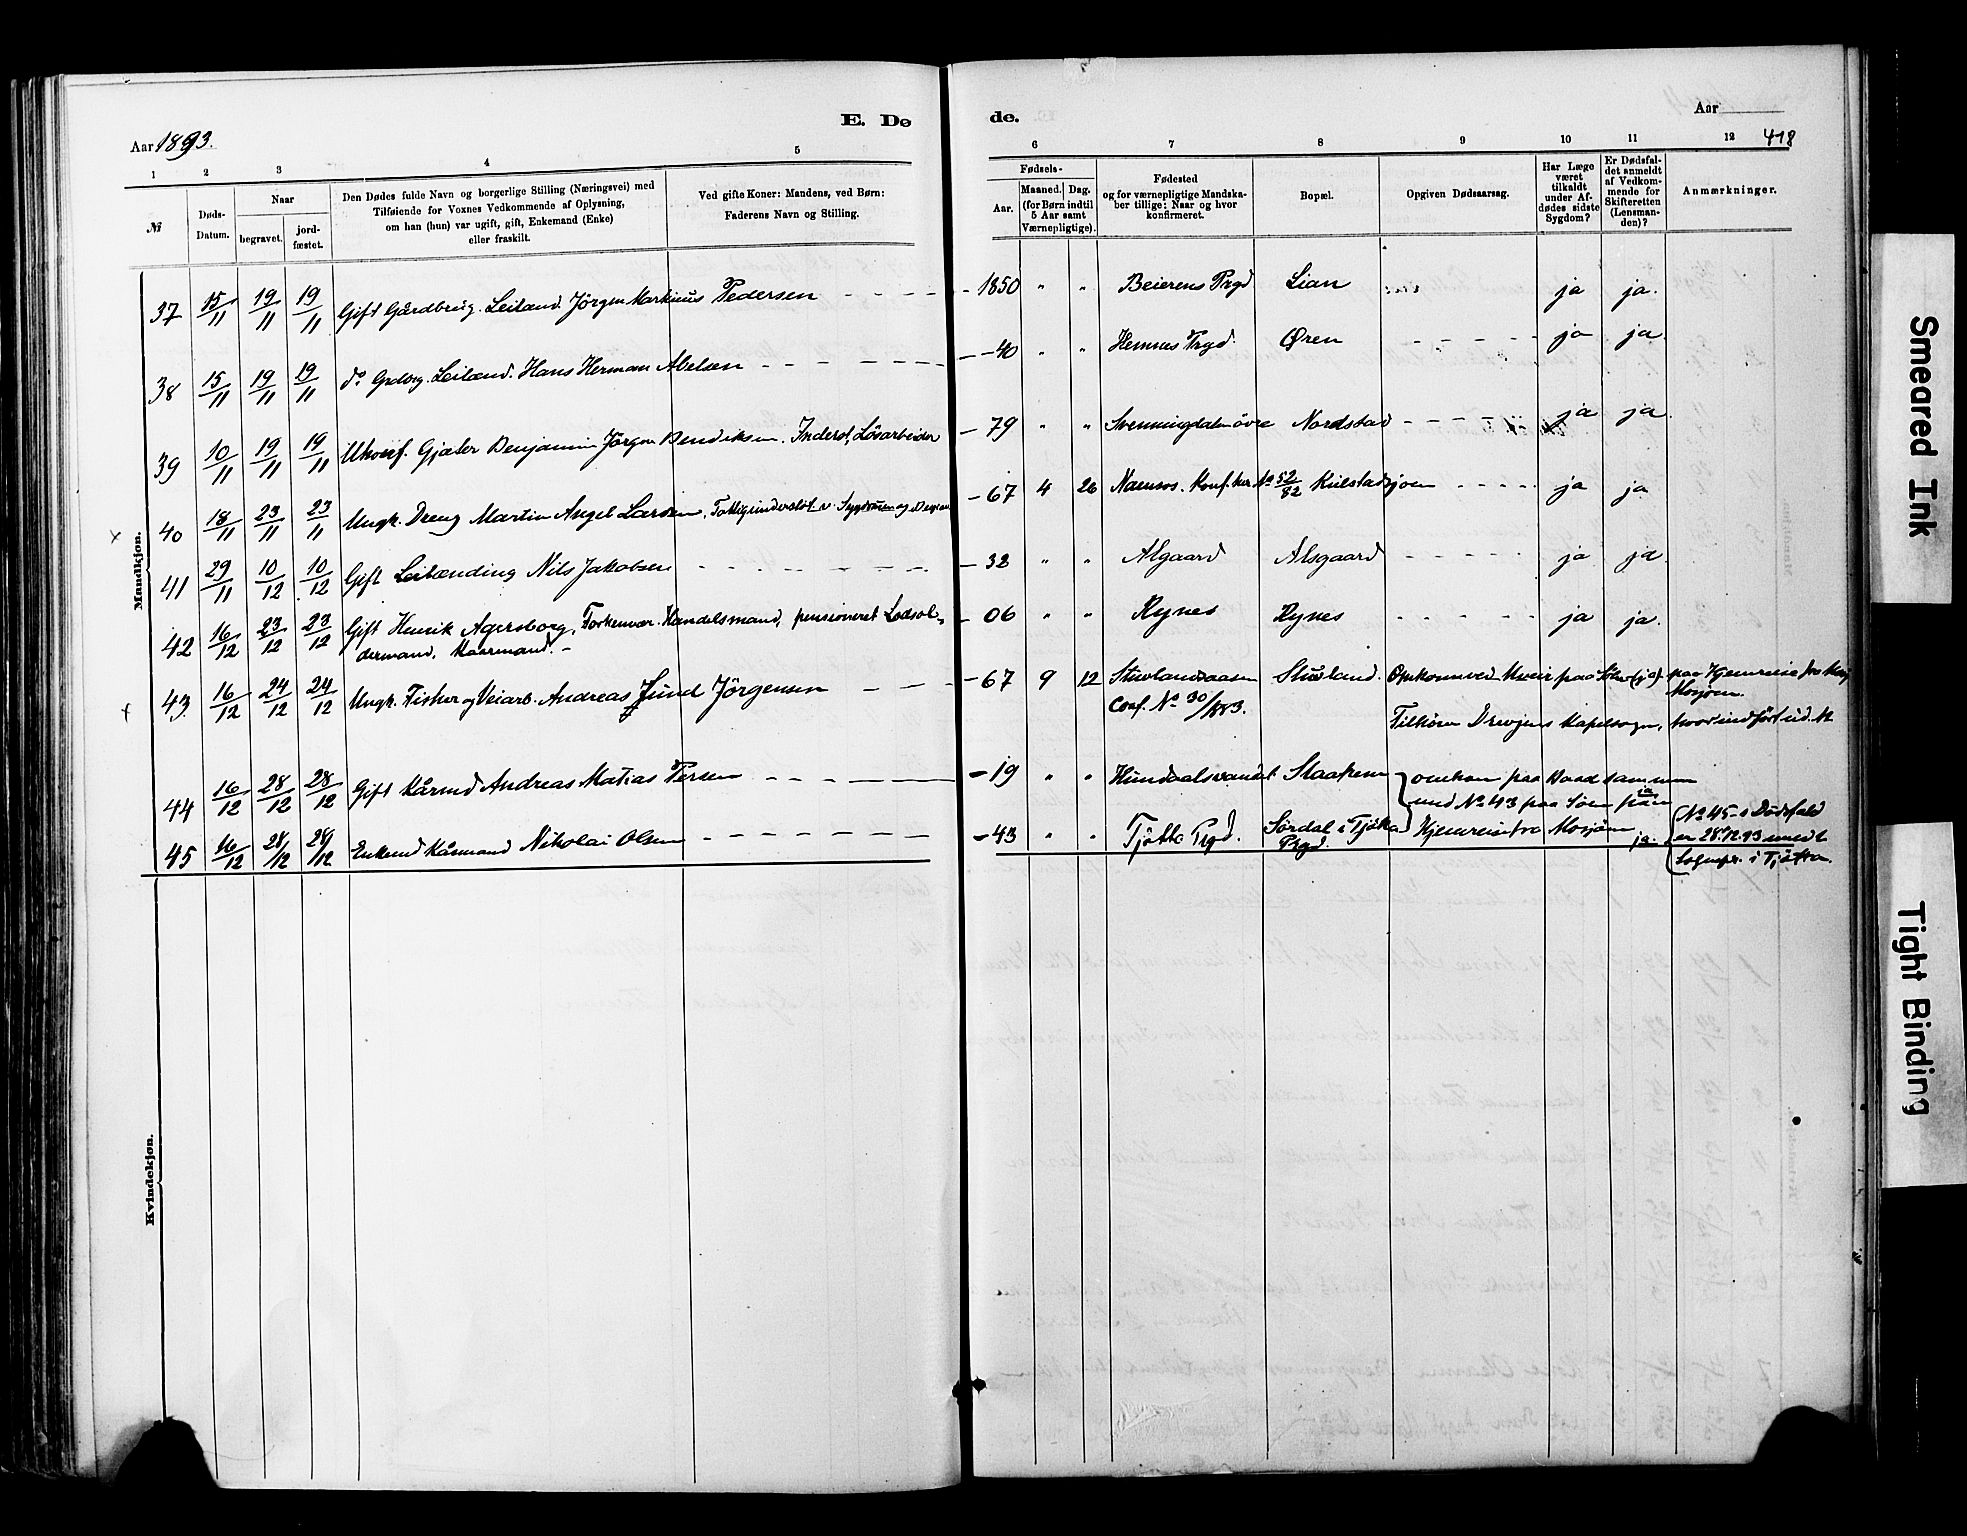 E. Dø de.
Aar 1893.
Aar
418
1 2 3 4 5 6 7 8 9 10 11 12
№
Døds-Datum.
Naar
begravet.
jord-fæstet.
Den Dødes fulde Navn og borgerlige Stilling (Næringsvei) med
Tilføiende for Voxnes Vedkommende af Oplysning,
om han (hun) var ugift, gift, Enkemand (Enke)
eller fraskilt.
Ved gifte Koner: Mandens, ved Børn:
Faderens Navn og Stilling.
Fødsels-
Aar.
Maaned. Dag.
(for Børn indtil
5 Aar samt
Værnepligtige).
Fødested
og for værnepligtige Mandska-
ber tillige: Naar og hvor
konfirmeret.
Bopæl.
Opgiven Dødsaarsag.
Har Læge
været
tilkaldt
under Af-
dødes sidste
Sygdom?
Er Dødsfal-
det anmeldt
af Vedkom-
mende for
Skifteretten
(Lensman-
den)?
Anmærkninger.
Mandkjøn.
37 15/11 19/11 19/11 Gift Gårdbrug. Leiland. Jörgen Markinus Pedersen - - - - 1850 " " Beierens Prgd Lian ja ja.
38 15/11 19/11 19/11 do Grdbrg. Leilænd. Hans Herman Abelsen - - - - 40 " " Hemnes Prgd. Øren - - - - - ja ja
39 10/11 19/11 19/11 Ukonf. Gjæter Benjamin Jörgen Bendiksen. Inderst, Lösarbeider - 79 " " Svenningdalen övre Nordstad - - - - ja ja
x 40 18/11 23/11 23/11 Ungk. Dreng Martin Angel Larsen, - 67 4 26 Namsos. Konf. her № 52/82 Kulstadsjoen - - - - ja ja
41 29/11 10/12 10/12 Gift Leilænding Nils Jakobsen - - - - - 32 " " Alsgaard Alsgaard - - - - - ja ja
42 16/12 23/12 23/12 Gift Henrik Agersborg, Handelsmand, pensioneret Lodsol- - 06 " " Rynes Rynes - - - - - ja ja.
dermand, Kaarmand. -
x 43. 16/12 24/12 24/12 Ungk. Fisker og Veiarb. Andreas Jörgensen - - - - 67 9 12 Stuvlandsaasen Stuvland. Omkom ved Uveir paa Söen (ja) paa Hjemreise fra
Mosjøen.
Conf. № 30/1883.
Tilhörer Drevjens Kapelsogn, hvor indført
44 16/12 28/12 28/12 Gift Kårmd Andreas Matias Persen - - - - - 19 " " Hundaalsvandet omkom paa Baad sammen
med № 43 paa Söen paa
45 16/12 28/12 29/12 Enkemd Kårmand Nikolai Olsen - - - - - 43 " " Tjötta Prgd. Sördal i Tjötta Prgd. Hjemreise fra Mosjöen ja.
(№ 45 s Dödsfald
er 28.12.93 meldt
Sognepr. i Tjötta.
Kvindekjøn.
Smeared Ink
Tight Binding